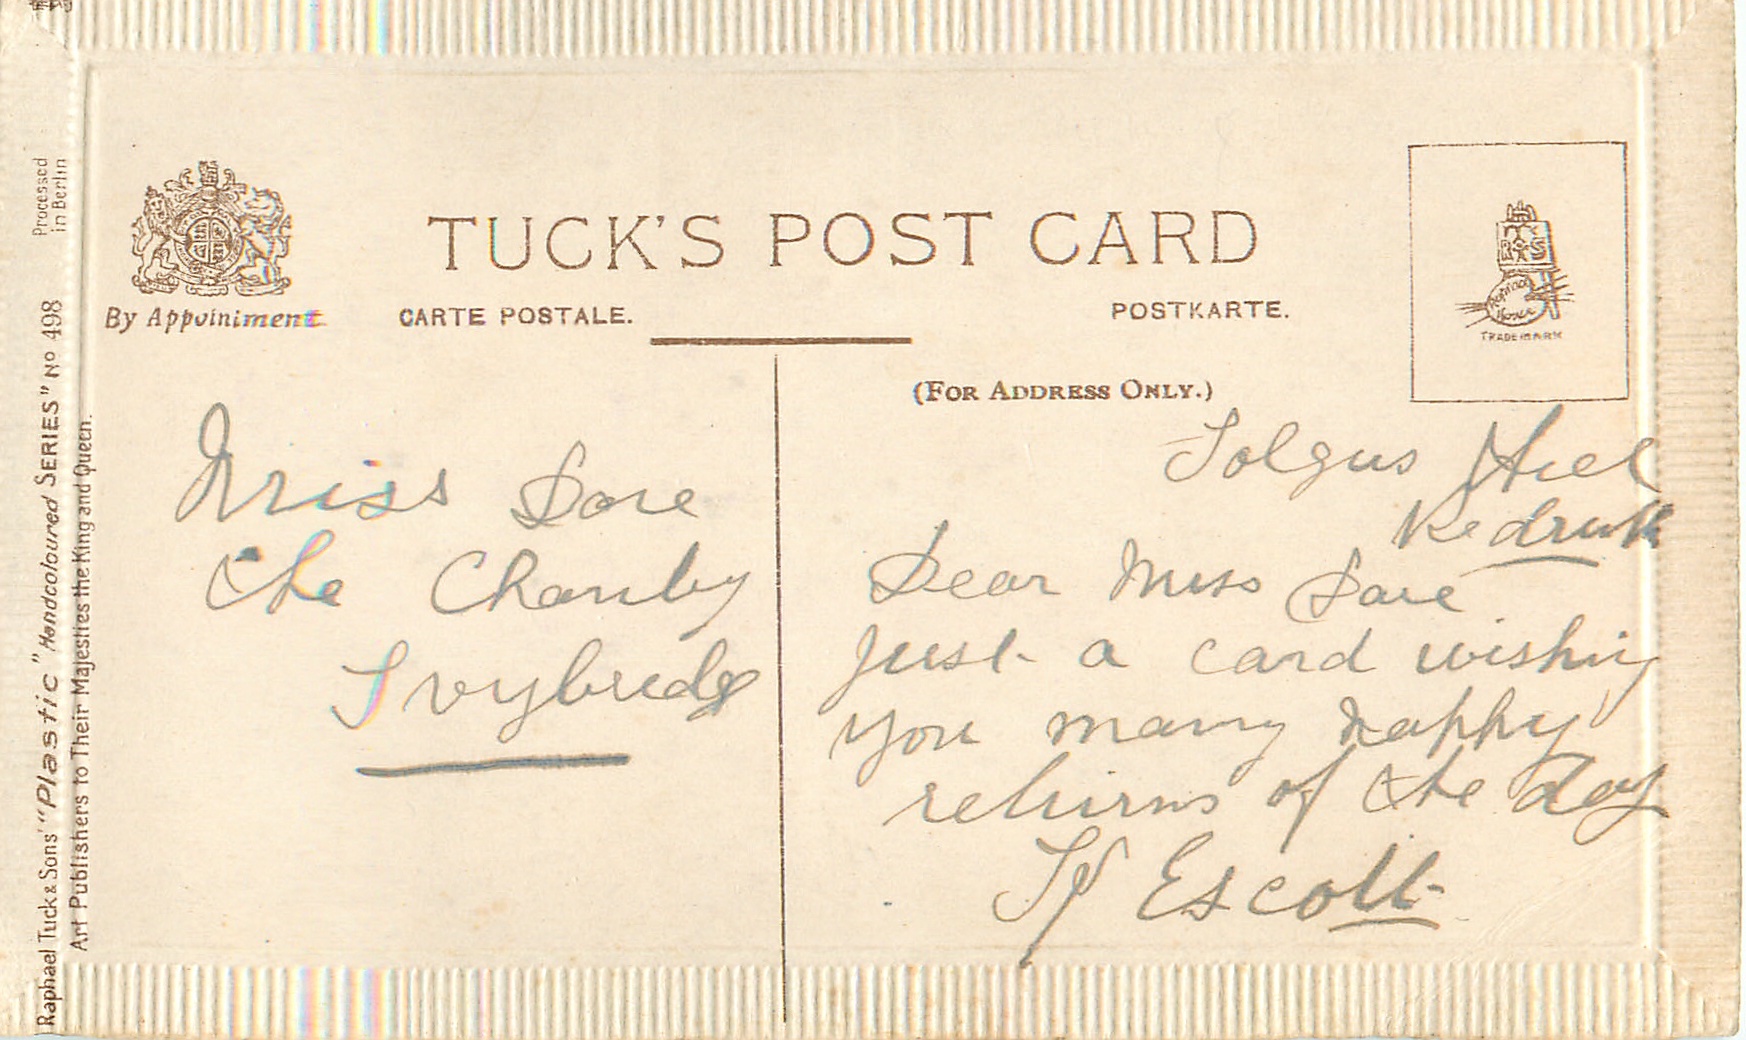 TUCK'S POST CARD
By Appointment
CARTE POSTALE.
POSTKARTE.
(FOR ADDRESS ONLY.)
R S
TRADE MARK
Miss Dore
the
Ivybridge
Tolgus Hill
Redruth
Dear Miss Dore
just a card wishing
you many happy
returns of the day
Escott
Raphael Tuck & Sons' "Plastic" Handcoloured SERIES" No 498
Processed
in Berlin
Art Publishers to Their Majesties the King and Queen.